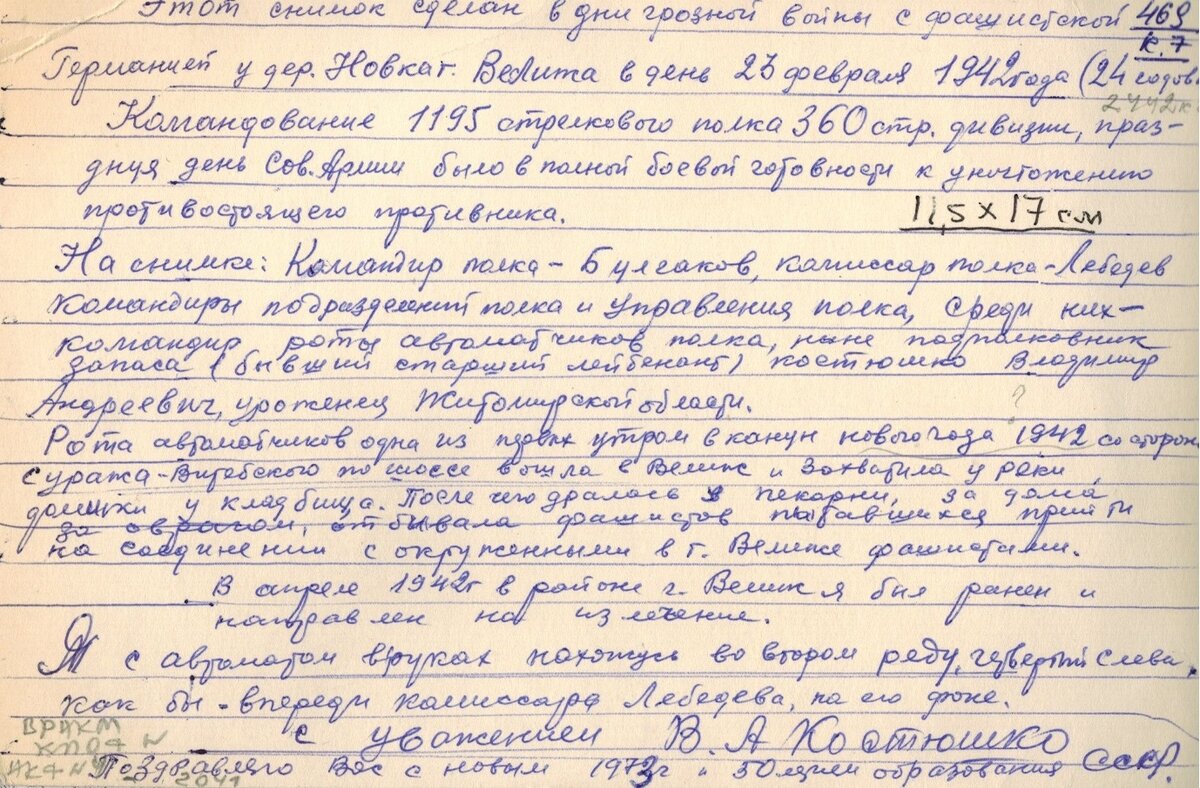 Этот снимок сделан в дни грозной войны с фашистской 469
к.7
Германией у дер. Новка г. Велижа в день 23 февраля 1942 года (24 годов
Командование 1195 стрелкового полка 360 стр. дивизии, праз-
днуя день Сов. Армии было в полной боевой готовности к уничтожению
противостоящего противника. 11,5 х 17 см
На снимке: Командир полка - Булгаков, комиссар полка - Лебедев
командиры подразделений полка и управления полка, среди них -
командир роты автоматчиков полка, ныне подполковник
запаса (бывший старший лейтенант) Костюшко Владимир
Андреевич, уроженец Житомирской области. ?
Рота автоматчиков одна из первых утром в канун нового года 1942 со стороны
Суража-Витебского по шоссе вошла в Велиж и захватила у реки
домики у кладбища. После чего дралась у пекарни, за дома
за оврагом, отбывала фашистов пытавшихся прийти
на соединении с окруженными в г. Велиже фашистами.
В апреле 1942 г в районе г. Велиж я был ранен и
направлен на излечение.
Я с автоматом в руках нахожусь во втором ряду, четвертый слева,
как бы - впереди комиссара Лебедева, на его фоне.
с уважением В. А Костюшко
Поздравляю Вас с новым 1973 г и 50 летием образования СССР.